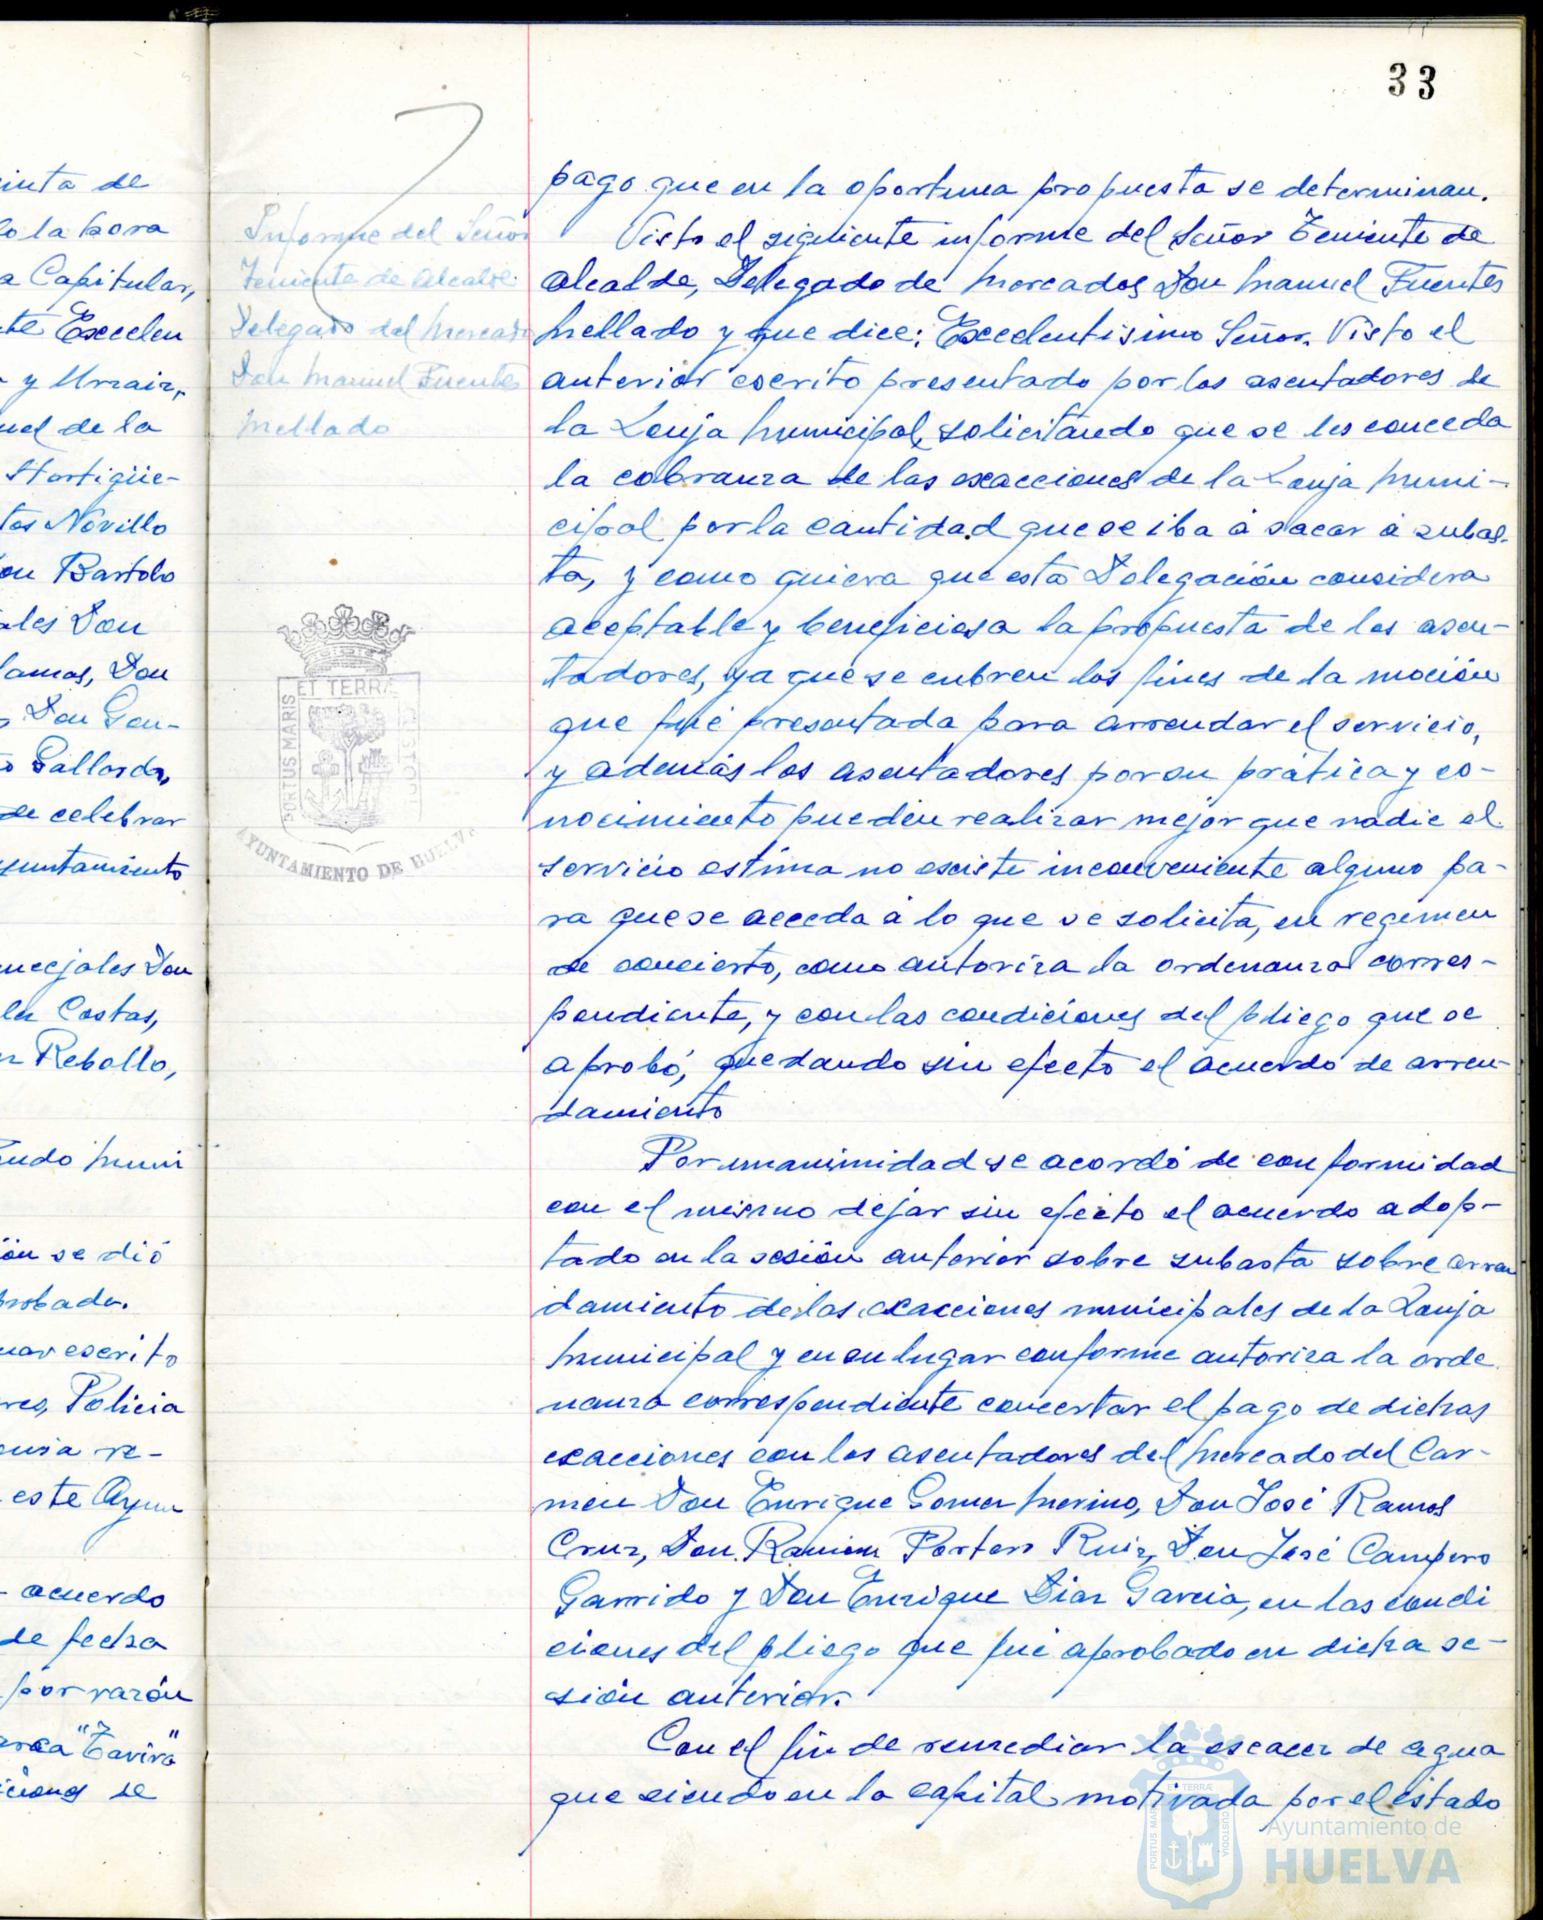 33
inta de
lo la hora
a Capitular,
te Excelen
y Urzaiz,
uel de la
Hortigüe-
tos Novillo
on Bartolo
ales Don
lamas, Don
Don Gon-
Gallardo,
de celebrar
yuntamiento
ncejales Don
la Costas,
Rebollo,
ndo Muni
ón se dió
probada.
nar escrito
res, Policia
ncia re-
este Ayun
- acuerdo
de fecha
por razón
arca "Tavira"
iciones se
Informe del Señor
Teniente de Alcalde
Delegado del Mercado
Don Manuel Fuentes
Mellado
PORTUS MARIS
ET TERRÆ
CUSTODIA
AYUNTAMIENTO DE HUELVA
pago que en la oportuna propuesta se determinan.
Visto el siguiente informe del Señor Teniente de
Alcalde, Delegado de Mercados Don Manuel Fuentes
Mellado y que dice: Excelentisimo Señor. Visto el
anterior escrito presentado por los asentadores de
la Lonja Municipal, solicitando que se les conceda
la cobranza de las exacciones de la Lonja Muni-
cipal por la cantidad que se iba á sacar á subas-
ta, y como quiera que esta Delegación considera
aceptable y beneficiosa la propuesta de los asen-
tadores, ya que se cubren los fines de la moción
que fué presentada para arrendar el servicio,
y además los asentadores por su prática y co-
nocimiento pueden realizar mejor que nadie el
servicio estima no exsiste inconveniente alguno pa-
ra que se acceda á lo que se solicita, en regimen
de concierto, como autoriza la ordenanza corres-
pondiente, y con las condiciones del pliego que se
aprobó, quedando sin efecto el acuerdo de arren-
damiento
Por unanimidad se acordó de conformidad
con el mismo dejar sin efecto el acuerdo adop-
tado en la sesión anterior sobre subasta sobre arren
damiento de las exacciones municipales de la Lonja
Municipal y en su lugar conforme autoriza la orde
nanza correspondiente concertar el pago de dichas
exacciones con los asentadores del Mercado del Car-
men Don Enrique Gomez Merino, Don José Ramos
Cruz, Don Ramon Portero Ruiz, Don José Campero
Garrido y Don Enrique Diaz Garcia, en las condi
ciones del pliego que fué aprobado en dicha se-
sión anterior.
Con el fin de remediar la escacez de agua
que siendo en la capital motivada por el estado
ET TERRÆ
PORTUS MARIS
CUSTODIA
Ayuntamiento de
HUELVA